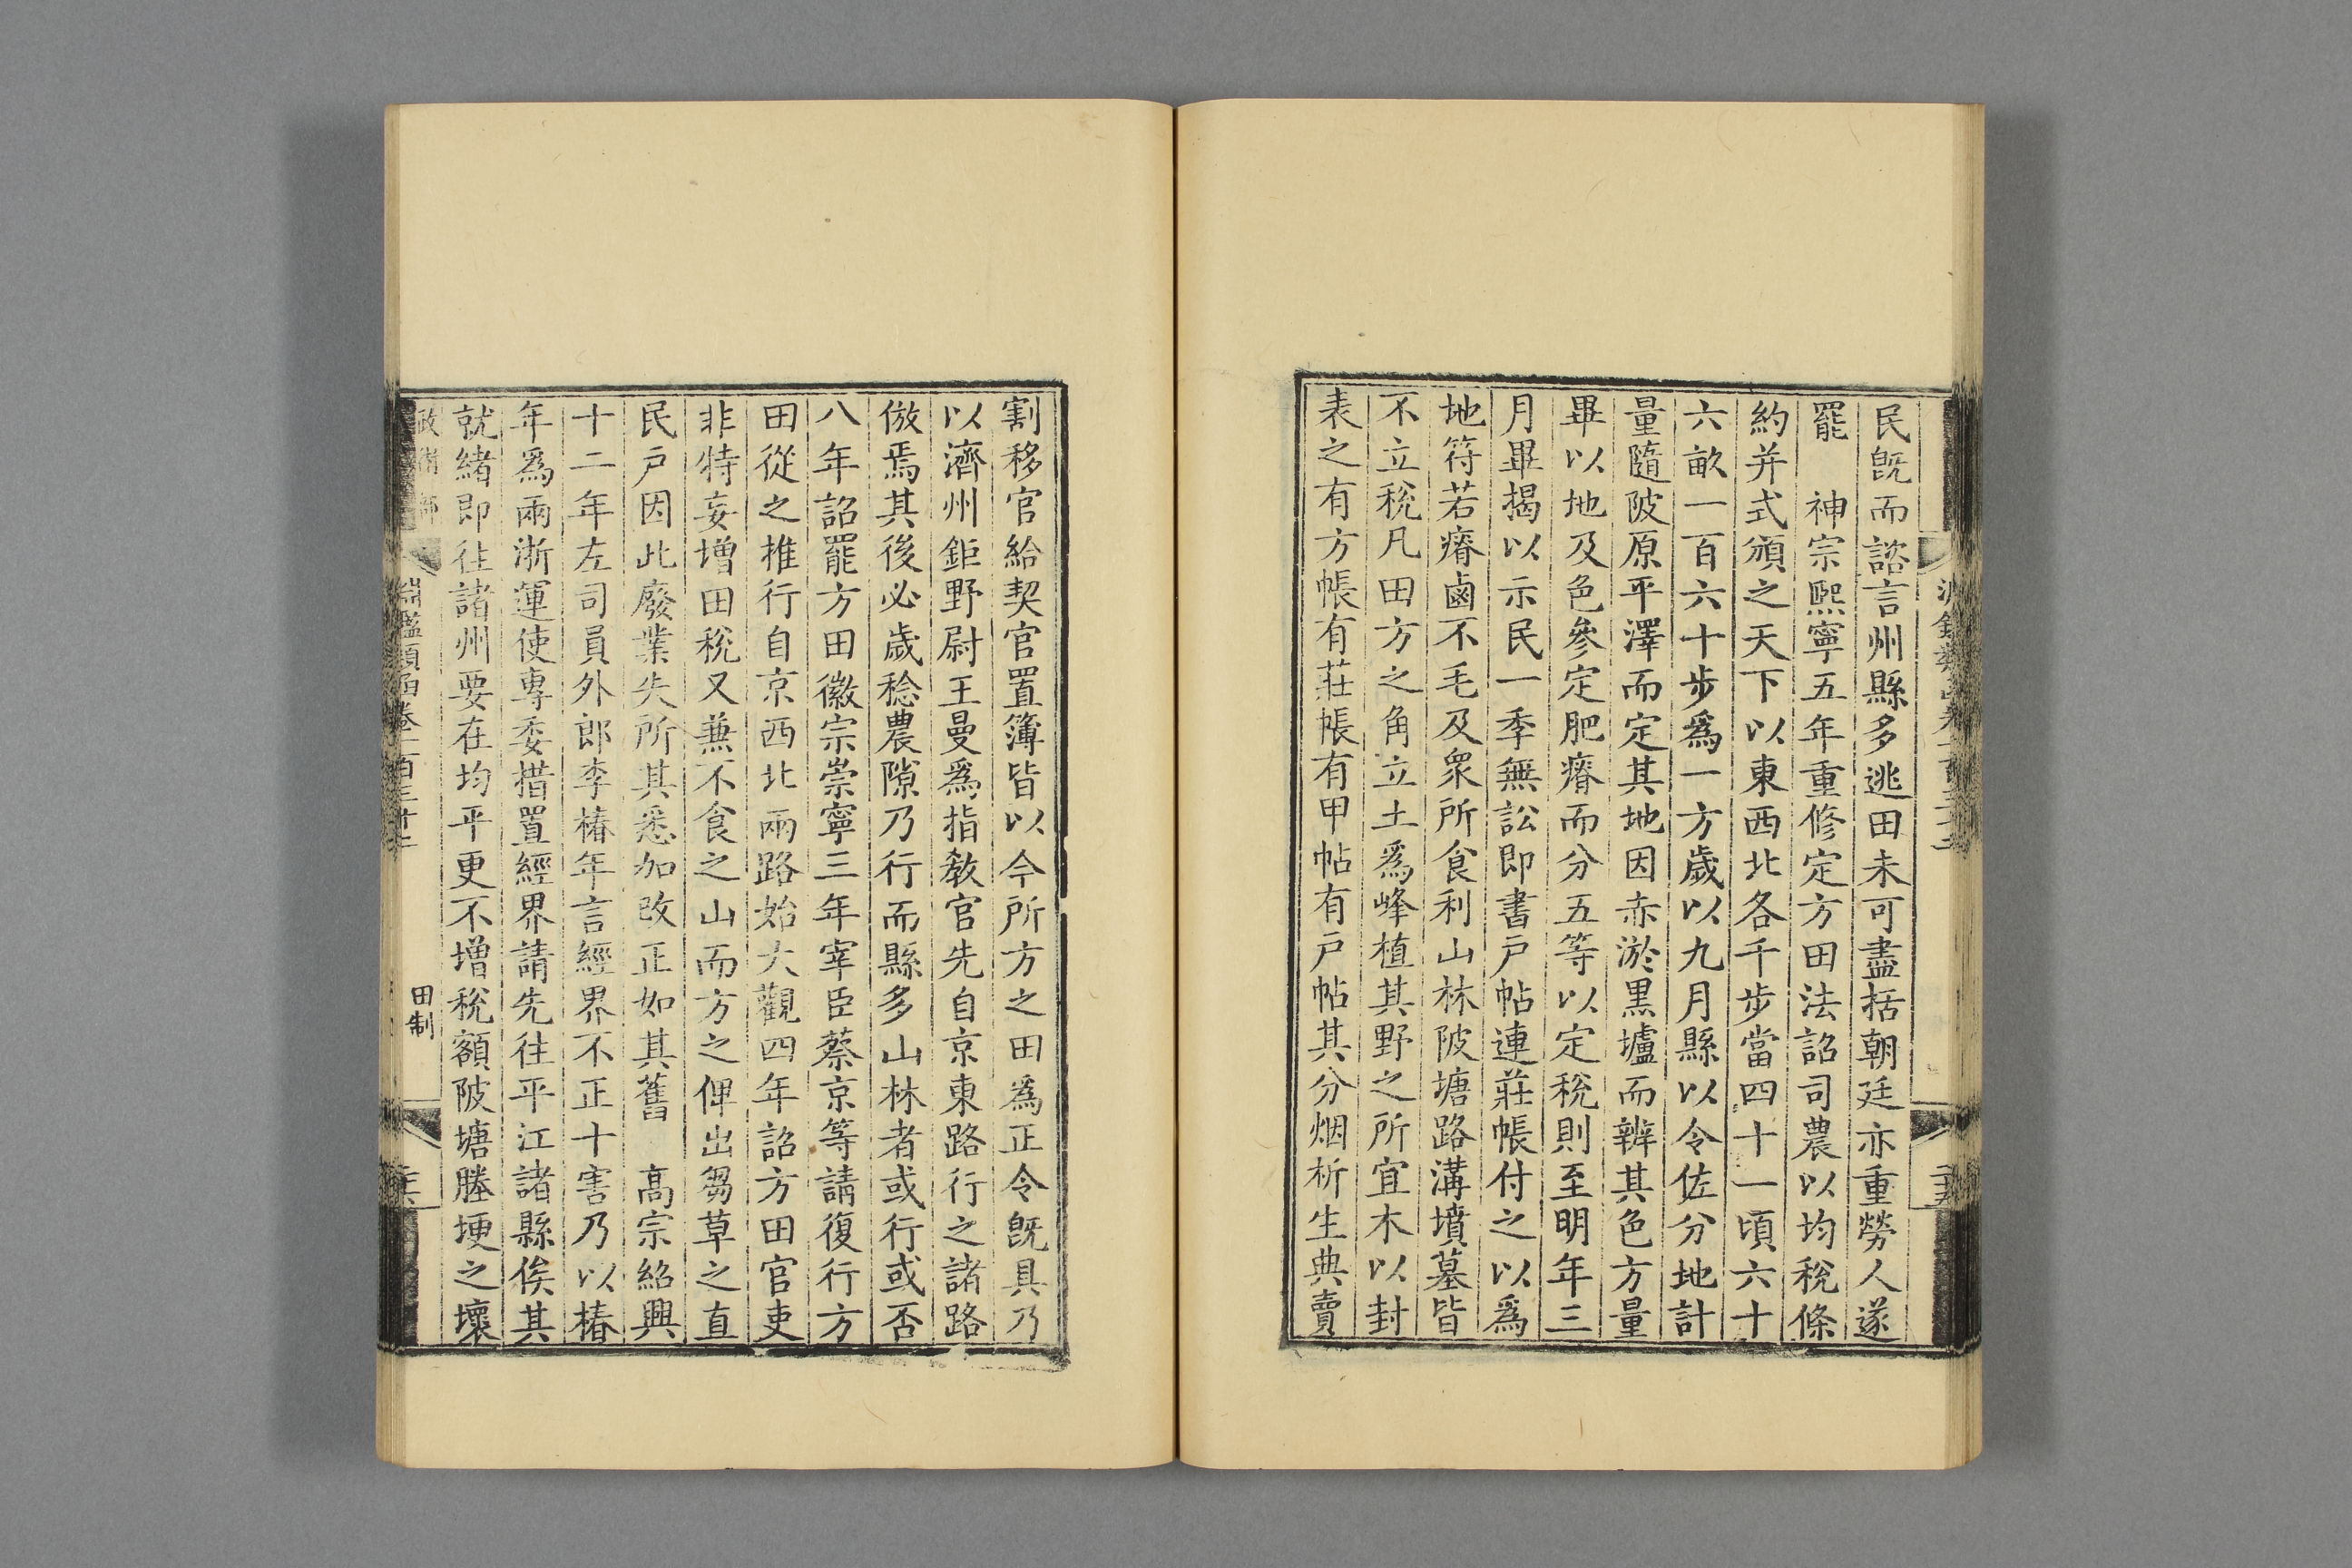 民旣而諮言州縣多逃田未可盡括朝廷亦重勞人遂
罷　神宗熙寧五年重修定方田法詔司農以均稅條
約并式頒之天下以東西北各千步當四十一頃六十
六畝一百六十步爲一方歲以九月縣以令佐分地計
量隨陂原平澤而定其地因赤淤黑壚而辨其色方量
畢以地及色參定肥瘠而分五等以定稅則至明年三
月畢揭以示民一季無訟即書戸帖連莊帳付之以爲
地符若瘠鹵不毛及衆所食利山林陂塘路溝墳墓皆
不立稅凡田方之角立土爲峰植其野之所宜木以封
表之有方帳有莊帳有甲帖有戸帖其分烟析生典賣
割移官給契官置簿皆以今所方之田爲正令旣具乃
以濟州鉅野尉王曼爲指教官先自京東路行之諸路
倣焉其後必歲稔農隙乃行而縣多山林者或行或否
八年詔罷方田徽宗崇寧三年宰臣蔡京等請復行方
田從之推行自京西北兩路始大觀四年詔方田官吏
非特妄增田稅又兼不食之山而方之俾出芻草之直
民戸因此廢業失所其悉加改正如其舊　高宗紹興
十二年左司員外郎李椿年言經界不正十害乃以椿
年爲兩浙運使專委措置經界請先往平江諸縣俟其
就緒即往諸州要在均平更不增稅額陂塘塍埂之壞
政術部
淵鑑類函卷一百三十二
田制